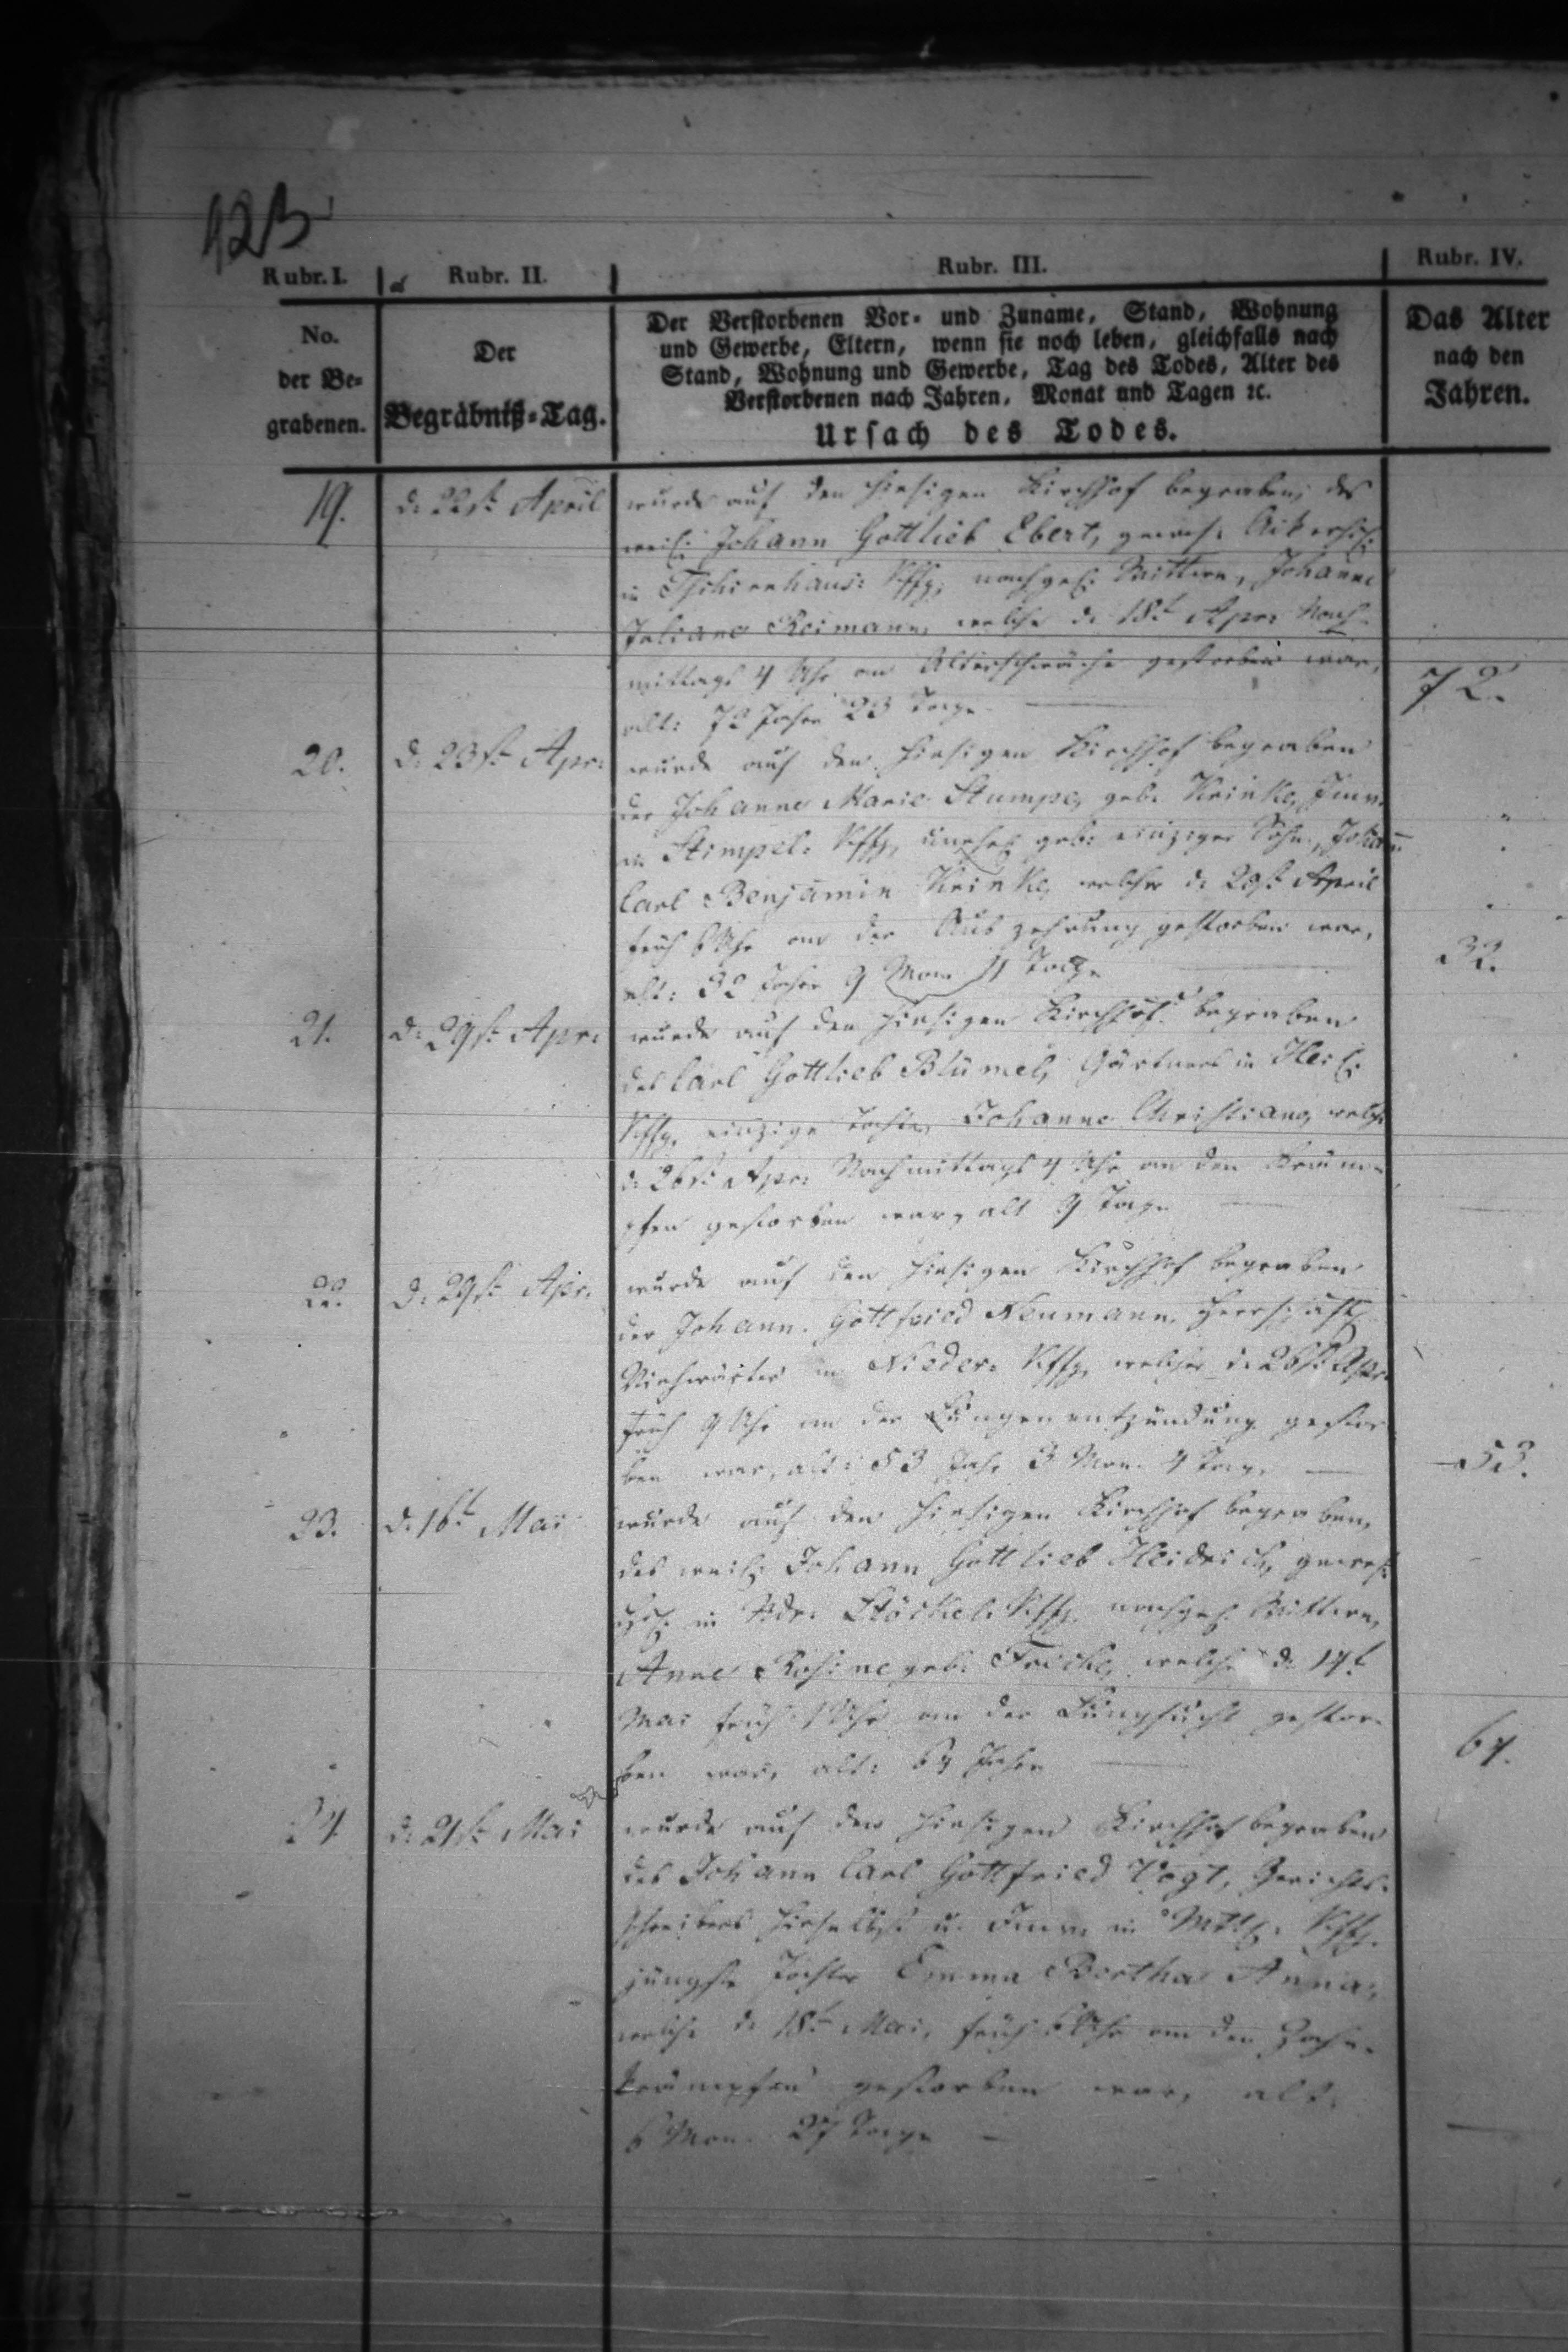 123
Rubr. I. Rubr. II. Rubr. III. Rubr. IV.
No. der Be-grabenen.
Der Begräbniß-Tag.
Der Verstorbenen Vor- und Zuname, Stand, Wohnung
und Gewerbe, Eltern, wenn sie noch leben, gleichfalls nach
Stand, Wohnung und Gewerbe, Tag des Todes, Alter des
Verstorbenen nach Jahren, Monat und Tagen ꝛc.
Ursach des Todes.
Das Alter
nach den
Jahren.
19. d. 22st. April wurde auf den hiesigen Kirchhof begraben, des
weil: Johann Gottlieb Ebert, gewes:
in Tschirnhaus: Kffg, nachgel: Wittwe, Johanne
Juliane Reimann, welche d. 18t Apr: Nach-
mittags 4 Uhr an Altersschwäche gestorben war,
alt: 72 Jahre 23 Tage 72.
20. d. 23st. Apr: wurde auf den hiesigen Kirchhof begraben
der Johanne Marie Stumpe, geb. Krinke, Inw.
in Stimpel: Kffg, unehel: geb: einziger Sohn, Johann
Carl Benjamin Krinke, welcher d. 20st. April
früh 6 Uhr an der Auszehrung gestorben war,
alt: 32 Jahre 9 Mon. 11 Tage 32.
21. d. 29st. Apr: wurde auf den hiesigen Kirchhof begraben
des Carl Gottlieb Blümel, Gärtners in
Kffg, einzige Tochter, Johanne Christiane, welche
d. 26st. Apr: Nachmittags 4 Uhr an den Kräm-
pfen gestorben war, alt 9 Tage
22. d. 29st. Apr. wurde auf den hiesigen Kirchhof begraben
der Johann Gottfried Neumann, herrschaftl:
Viehwärter in Nieder: Kffg, welcher d. 26st. Apr.
früh 9 Uhr an der Lungenentzündung gestor-
ben war, alt: 53 Jahr 3 Mon. 4 Tage 53.
23. d. 16t Mai wurde auf den hiesigen Kirchhof begraben,
des weil: Johann Gottlieb Heidrich, gewes:
in Ndr: Stöckel: Kffg. nachgel: Wittwe,
Anne Rosine geb: Fricke, welche d. 14t
Mai früh 1 Uhr an der Lungsucht gestor-
ben war, alt: 64 Jahre 64.
24. d. 21st. Mai wurde auf den hiesigen Kirchhof begraben
des Johann Carl Gottfried Vogt, Gerichts-
schreibers hierselbst u. Inw. in Mttl: Kffg.
jüngste Tochter Emma Bertha Anna,
welche d. 18t Mai, früh Uhr an den Zahn-
krämpfen gestorben war, alt.
6 Mon. 27 Tage